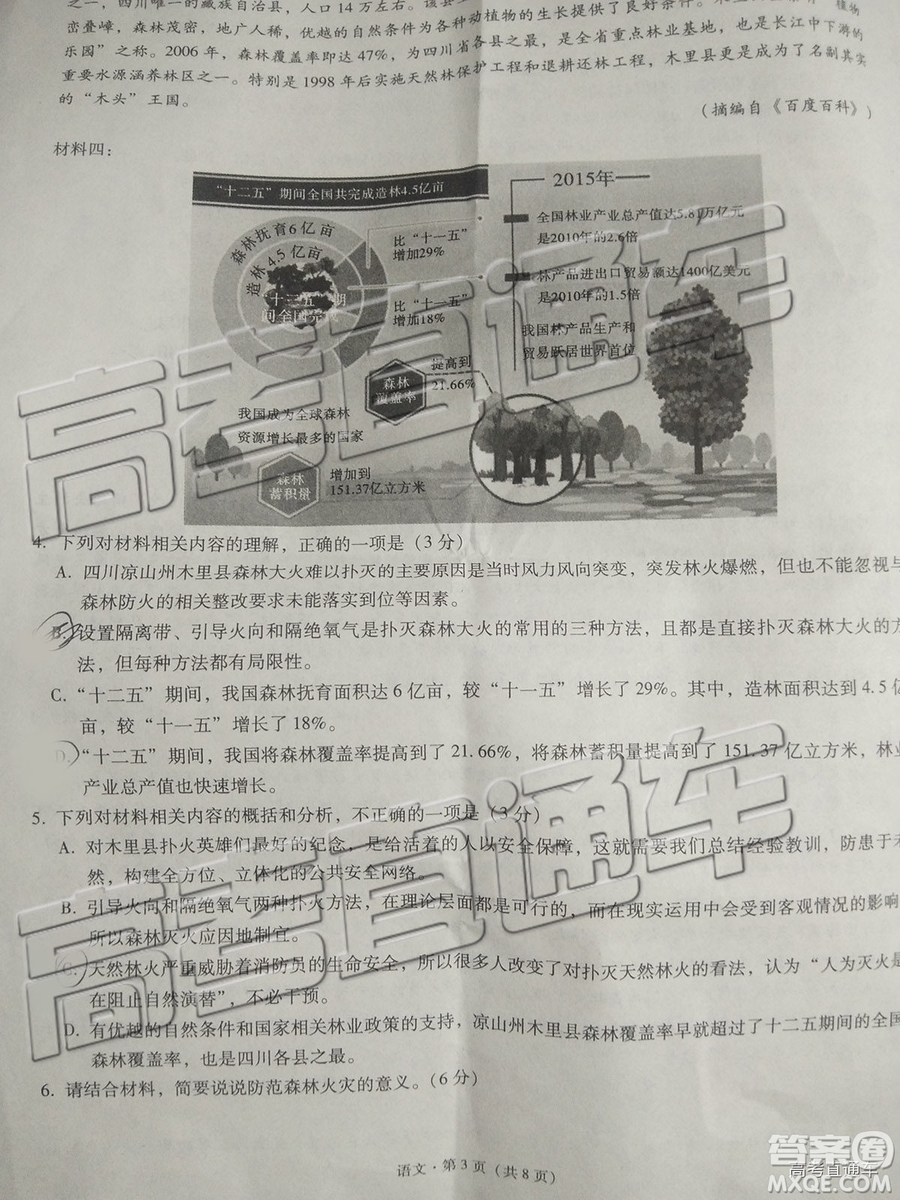 之一，四川唯一的藏族自治县，人口 14 万左右。该县
峦叠嶂，森林茂密，地广人稀，优越的自然条件为各种动植物的生长提供了良好条件。
植物
乐园”之称。2006 年，森林覆盖率即达 47%，为四川省各县之最，是全省重点林业基地，也是长江中下游的
重要水源涵养林区之一。特别是 1998 年后实施天然林保护工程和退耕还林工程，木里县更是成为了名副其实
的“木头”王国。
（摘编自《百度百科》）
材料四：
“十二五”期间全国共完成造林4.5亿亩
森林抚育6亿亩
造林4.5亿亩
“十二五”期
间全国完成
比“十一五”
增加29%
比“十一五”
增加18%
森林
覆盖率
提高到
21.66%
我国成为全球森林
资源增长最多的国家
森林
蓄积量
增加到
151.37亿立方米
2015年
全国林业产业总产值达5.81万亿元
是2010年的2.6倍
林产品进出口贸易额达1400亿美元
是2010年的1.5倍
我国林产品生产和
贸易跃居世界首位
4. 下列对材料相关内容的理解，正确的一项是（3 分）
A. 四川凉山州木里县森林大火难以扑灭的主要原因是当时风力风向突变，突发林火爆燃，但也不能忽视与
森林防火的相关整改要求未能落实到位等因素。
B. 设置隔离带、引导火向和隔绝氧气是扑灭森林大火的常用的三种方法，且都是直接扑灭森林大火的方
法，但每种方法都有局限性。
C. “十二五”期间，我国森林抚育面积达 6 亿亩，较“十一五”增长了 29%。其中，造林面积达到 4.5 亿
亩，较“十一五”增长了 18%。
D. “十二五”期间，我国将森林覆盖率提高到了 21.66%，将森林蓄积量提高到了 151.37 亿立方米，林业
产业总产值也快速增长。
5. 下列对材料相关内容的概括和分析，不正确的一项是（3 分）
A. 对木里县扑火英雄们最好的纪念，是给活着的人以安全保障，这就需要我们总结经验教训，防患于未
然，构建全方位、立体化的公共安全网络。
B. 引导火向和隔绝氧气两种扑火方法，在理论层面都是可行的，而在现实运用中会受到客观情况的影响，
所以森林灭火应因地制宜。
C. 天然林火严重威胁着消防员的生命安全，所以很多人改变了对扑灭天然林火的看法，认为“人为灭火是
在阻止自然演替”，不必干预。
D. 有优越的自然条件和国家相关林业政策的支持，凉山州木里县森林覆盖率早就超过了十二五期间的全国
森林覆盖率，也是四川各县之最。
6. 请结合材料，简要说说防范森林火灾的意义。（6 分）
语文·第 3 页（共 8 页）
高考直通车
高考直通车
答案圈
高考直通车
MXQE.COM